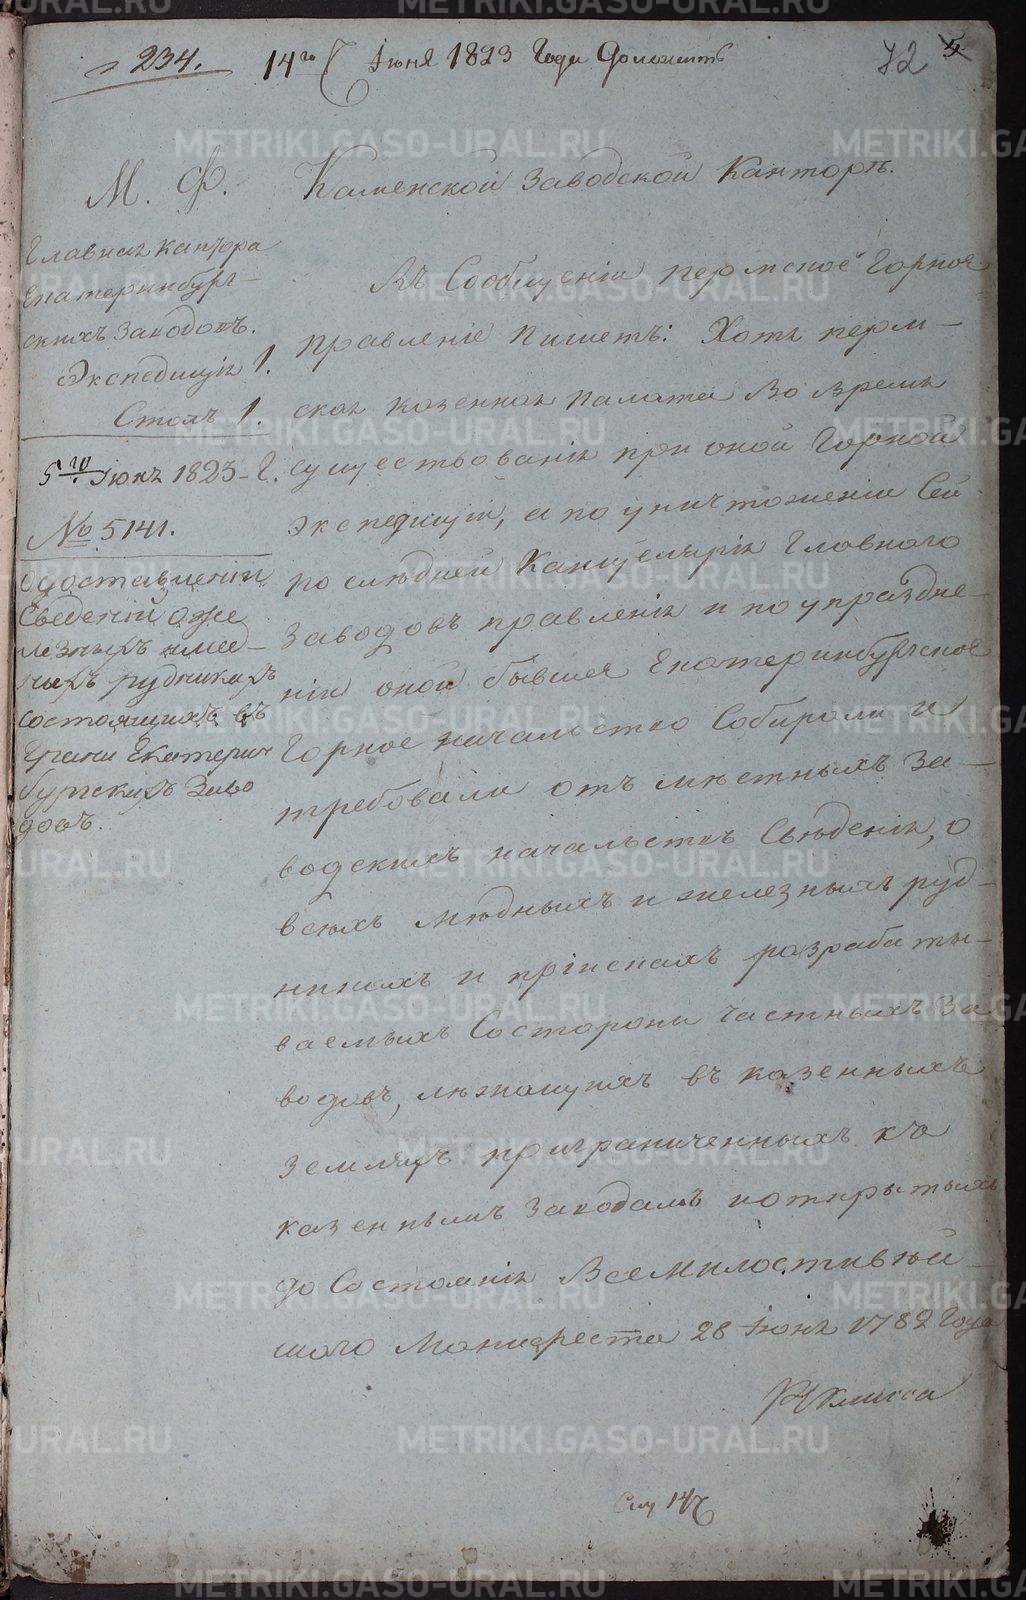 234.
14го Іюня 1823 Года Доложить
72
М. Ф.
Главная кантора
Екатеринбург-
скихъ Заводовъ.
Экспедиція 1.
Столъ 1.
5го Іюня 1823-Г.
№ 5141.
О доставленіи
Сведеній о же
лезныхъ имед-
ныхъ рудникахъ
состоящихъ въ
Грани Екатерин
бургскихъ Заво
довъ.
Каменской Заводской Канторѣ.
Въ Сообщеніи пермское Горное
правленіе Пишетъ: Хотя перм-
ская казенная палата Во время
существованія при оной Горной
экспедиціи, а по уничтоженіи Сей
послѣдней Канцелярія Главного
Заводовъ правленія и по упраздне-
ніи оной бывшее Екатеринбургское
Горное начальство Собирали и
требовали отъ мѣстныхъ За-
водскихъ начальствъ Свѣденія, о
всѣхъ мѣдныхъ и железныхъ руд-
никахъ и пріискахъ разрабаты-
ваемыхъ Состороны частныхъ За
водовъ, лѣжащихъ въ казенныхъ
Земляхъ приграниченныхъ къ
казеннымъ Заводамъ иоткрытыхъ
до Состоянія Всемилостивѣй-
шаго Манифеста 28 Іюня 1782 Года